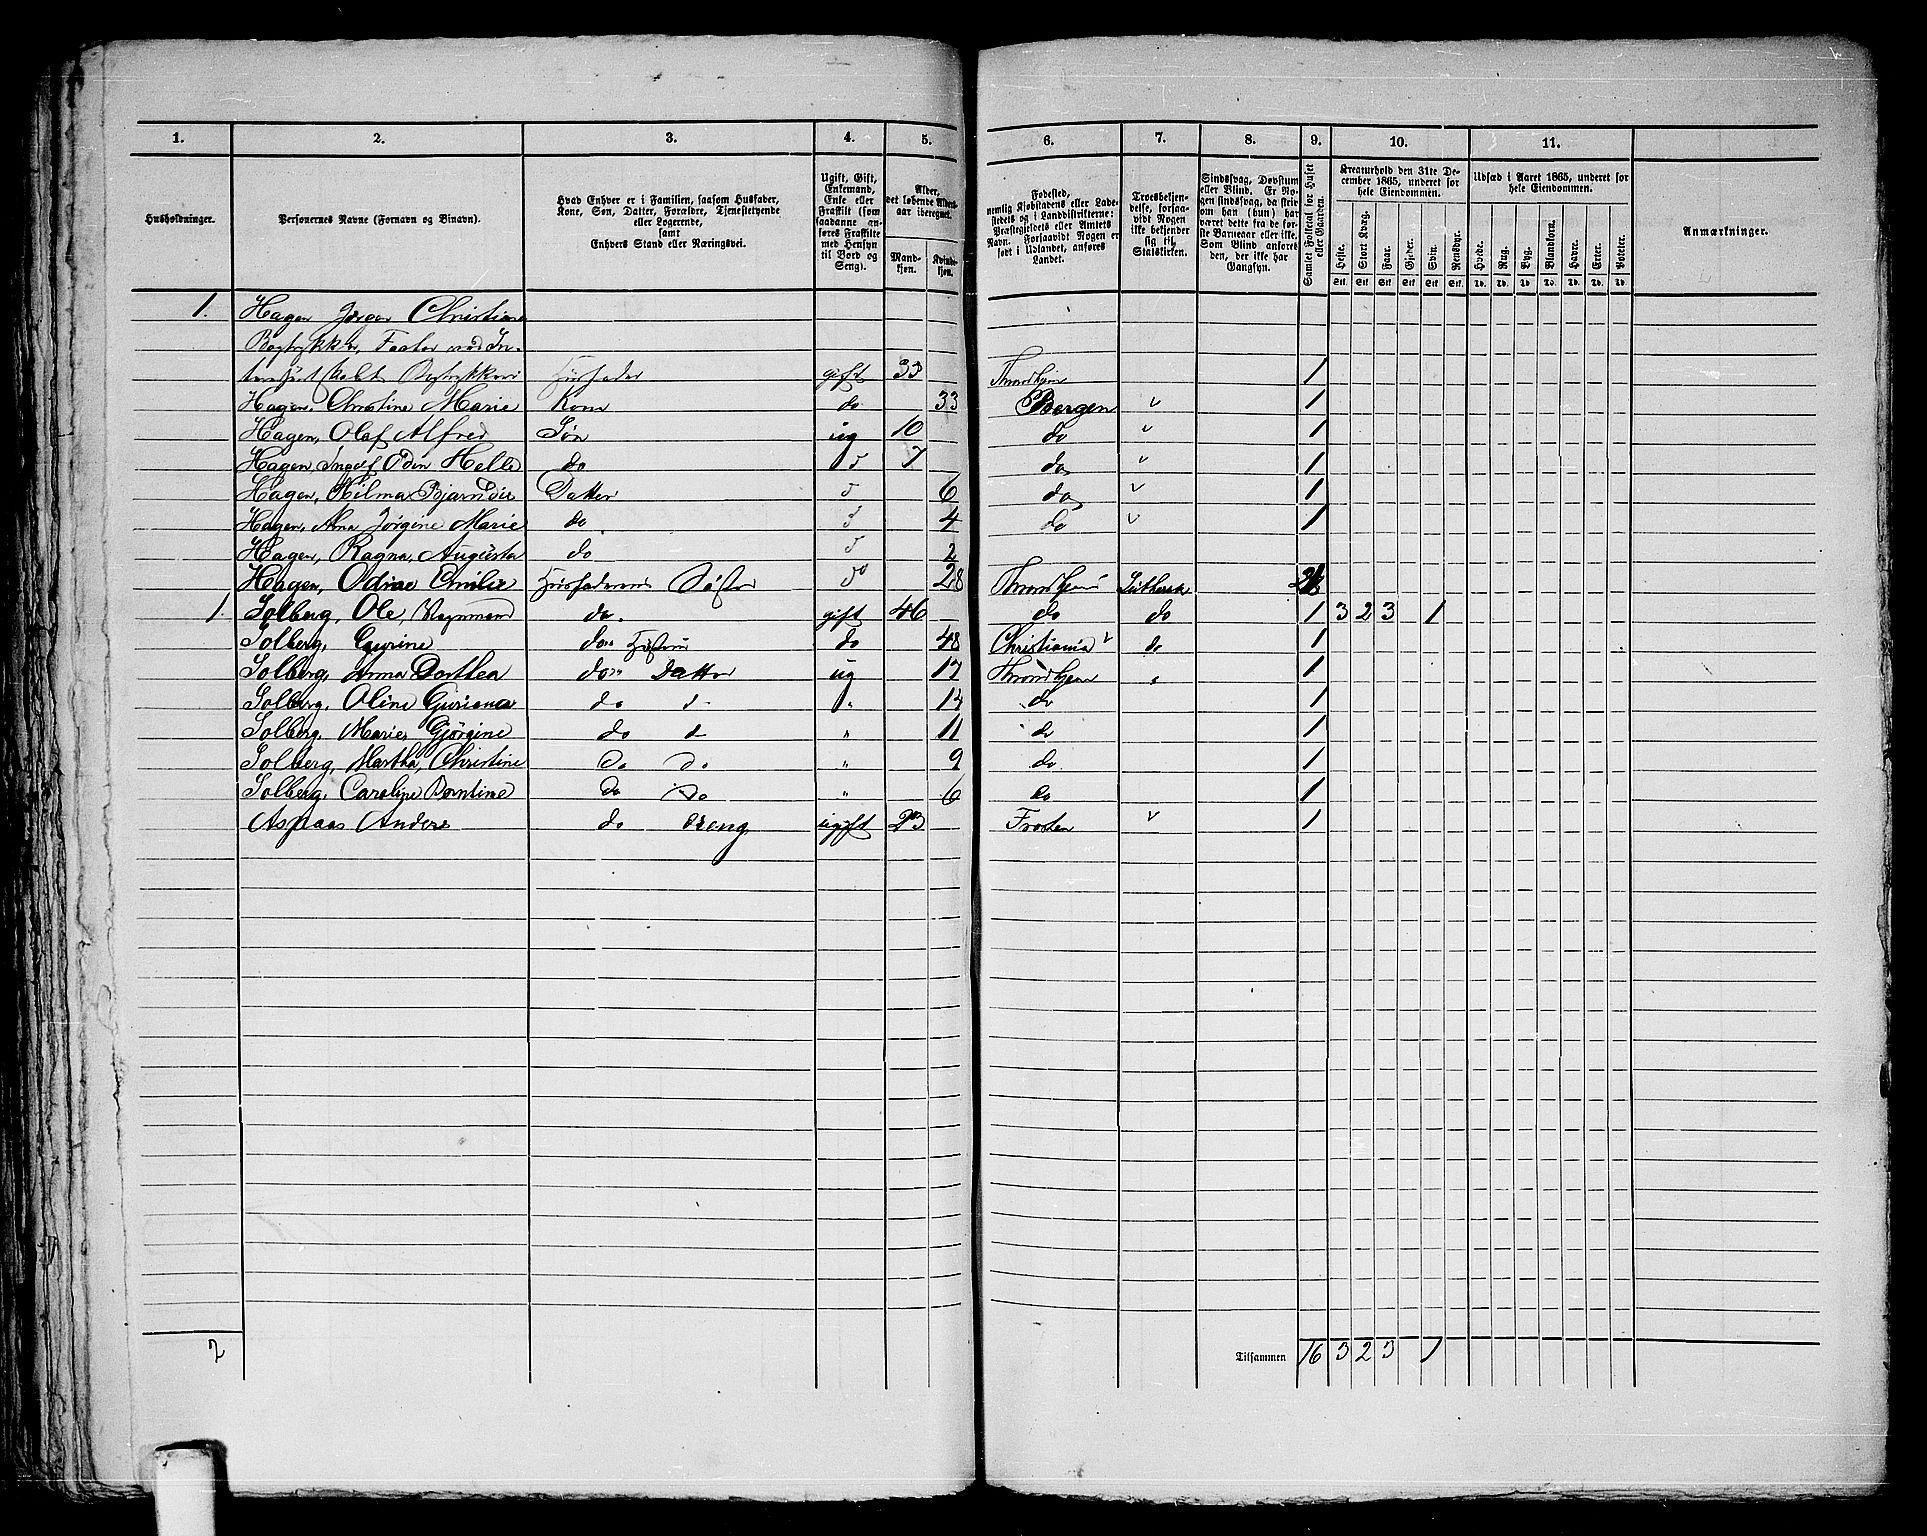 1. 2. 3. 4. 5. 6. 7. 8. 9. 10. 11.
Husholdninger.
Personernes Navne (Fornavn og Binavn).
Hvad Enhver er i Familien, saasom Husfader,
Kone, Søn, Datter, Forældre, Tjenestetyende
eller Logerende,
samt
Enhvers Stand eller Næringsvei.
Ugift, Gift,
Enkemand,
Enke eller
Fraskilt (som
saadanne an-
føres Fraskilte
med Hensyn
til Bord og
Seng).
Alder,
det løbende Alders-
aar iberegnet.
Mand-
kjøn.
Kvinde-
kjøn.
Fødested,
nemlig Kjøbstadens eller Lade-
stedets og i Landdistrikterne:
Præstegjeldets eller Amtets
Navn. Forsaavidt Nogen er
født i Udlandet, anføres
Landet.
Troesbekjen-
delse, forsaa-
vidt Nogen
ikke bekjender
sig til
Statskirken.
Sindssvag, Døvstum
eller Blind. Er No-
gen sindssvag, da skri-
ves om han (hun) har
været dette fra de før-
ste Barneaar eller ikke.
Som Blind anføres
den, der ikke har
Gangsyn.
Samlet Folketal for Huset
eller Gaarden.
Kreaturhold den 31te De-
cember 1865, underet for
hele Eiendommen.
Heste. Stort Kvæg. Faar. Gjeder. Svin. Rensdyr.
Stk. Stk. Stk. Stk. Stk. Stk.
Udsæd i Aaret 1865, underet for
hele Eiendommen.
Hvede. Rug. Byg. Blandkorn. Havre. Erter. Poteter.
Td. Td. Td. Td. Td. Td. Td.
Anmærkninger.
1. Hagen Jørgen Christian
Bogtrykker, Factor ved In-
Bogtrykkeri Husfader gift 33 Throndhjem 1
Hagen, Christine Marie Kone do 33 Bergen 1
Hagen, Olaf Alfred Søn ug 10 do 1
Hagen, Ingolf Oden Helle do 7 do 1
Hagen, Hilma Datter 6 do 1
Hagen, Alma Jørgine Marie do. 4 do 1
Hagen, Ragna, Augusta do 2
Hagen, Odine Emilie Husfaderens Søster do 28 Throndhjem Luthersk
1. Solberg, Ole, do. gift 46 do do 1 3 2 3 1
Solberg, Gurine do" Hustru do 48 Christiania do 1
Solberg, Anna Dorthea do" Datter ug 17 Throndhjem " 1
Solberg, Oline Guriana do d " 14 do 1
Solberg, Marie, Gjørgine do d " 11 do 1
Solberg, Martha, Christine Do Do " 9 do 1
Solberg, Caroline Do Do " 6 do 1
Aspaas Anders do Dreng ugift 23 Frosten 1
2 Tilsammen 16 3 2 3 1